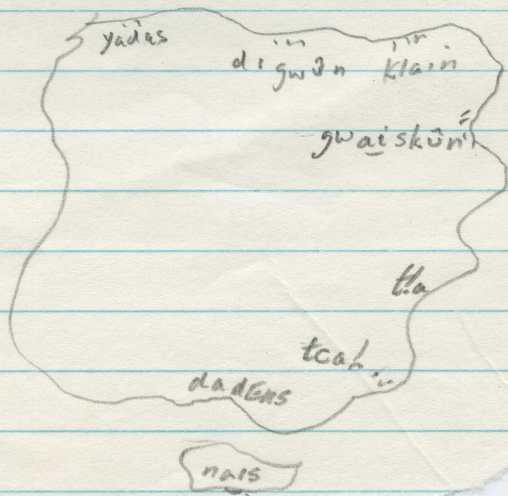 yadas
digwûn klain
gwaiskûn
t!a
tcał
dadEns
nais